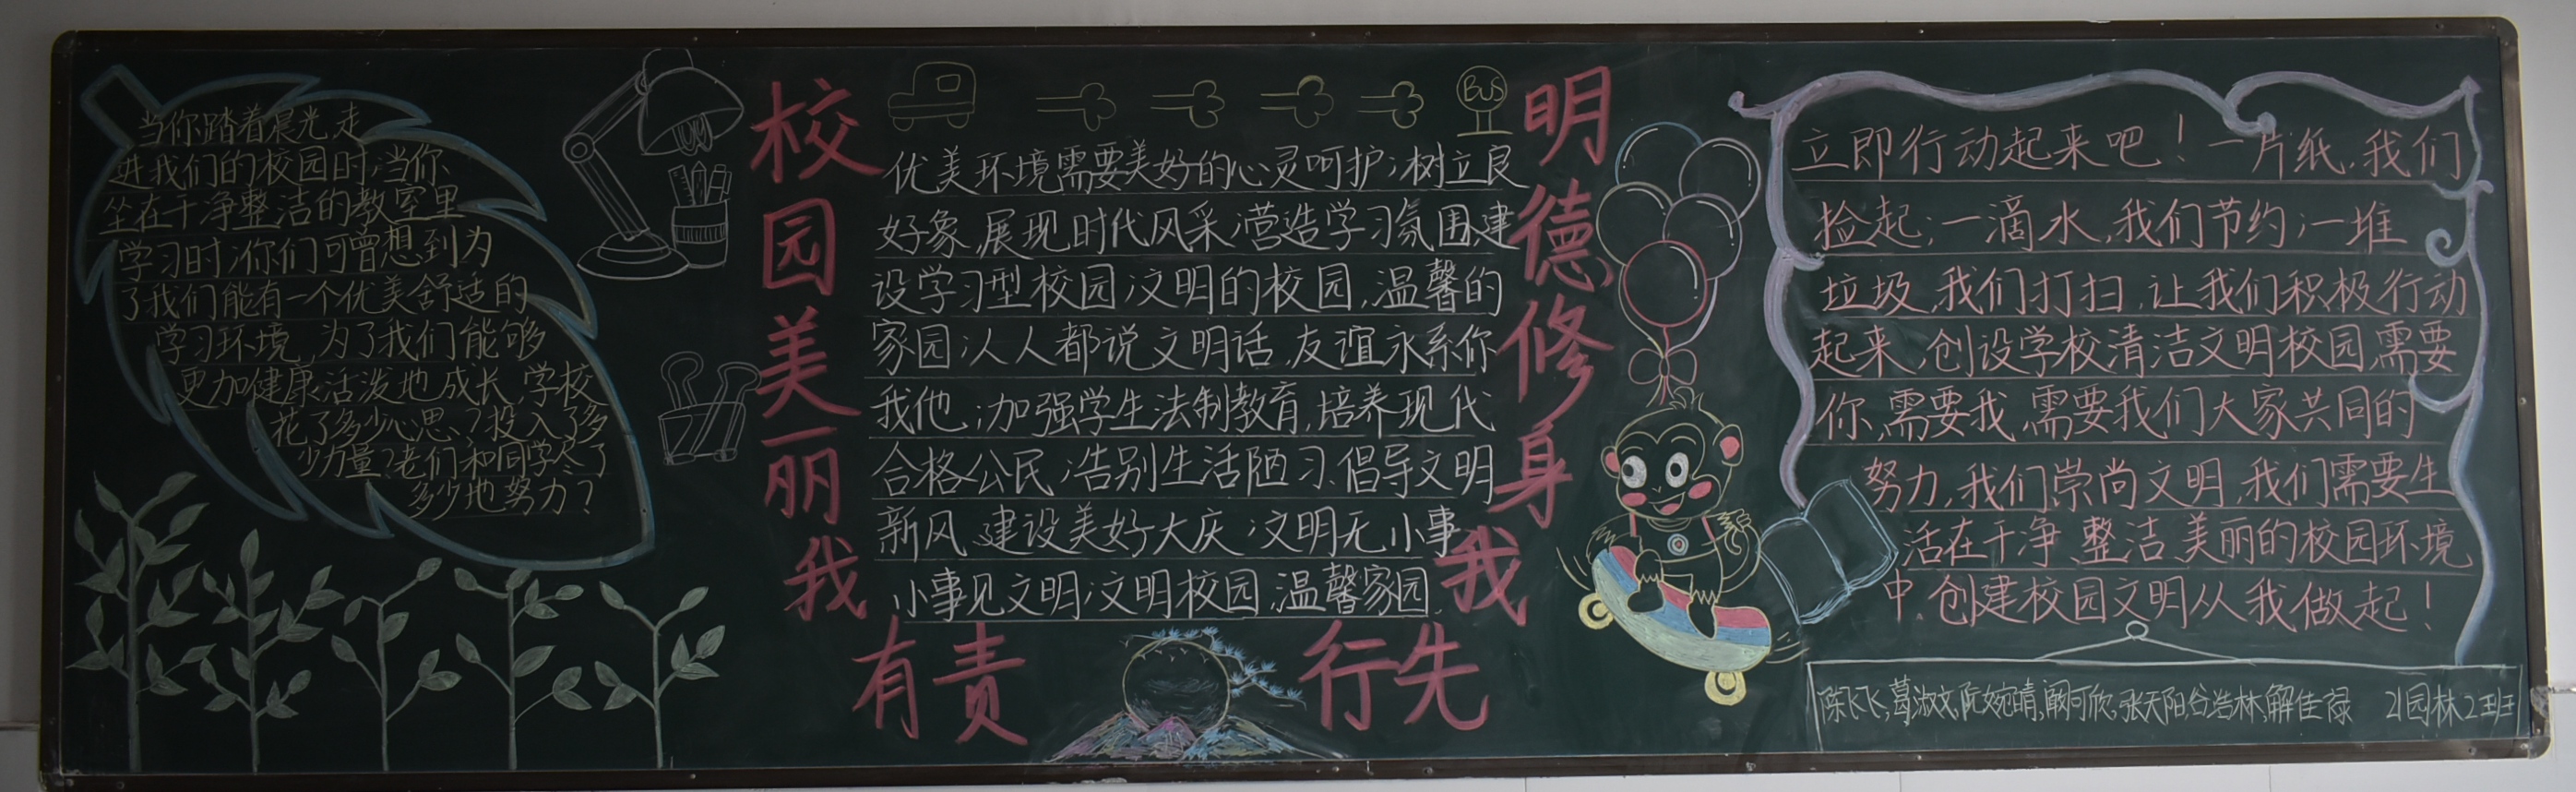 当你踏着晨光走
进我们的校园时,当你
坐在干净整洁的教室里
学习时,你们可曾想到为
了我们能有一个优美舒适的
学习环境,为了我们能够
更加健康活泼地成长,学校
花了多少心思?投入了多
少力量?老们和同学尽了
多少地努力?
校园美丽我
有责
BUS
优美环境需要美好的心灵呵护;树立良
好象,展现时代风采;营造学习氛围,建
设学习型校园;文明的校园,温馨的
家园;人人都说文明话,友谊永系你
我他;加强学生法制教育,培养现代
合格公民;告别生活陋习,倡导文明
新风,建设美好大庆;文明无小事
小事见文明;文明校园,温馨家园.
明德修身我
行先
立即行动起来吧!一片纸,我们
捡起;一滴水,我们节约;一堆
垃圾,我们打扫,让我们积极行动
起来,创设学校清洁文明校园,需要
你,需要我,需要我们大家共同的
努力,我们崇尚文明,我们需要生
活在干净 整洁 美丽的校园环境
中,创建校园文明从我做起!
陈飞飞,葛淑文,阮婉晴,阚可欣,张天阳,谷浩林,解佳禄 21园林2班